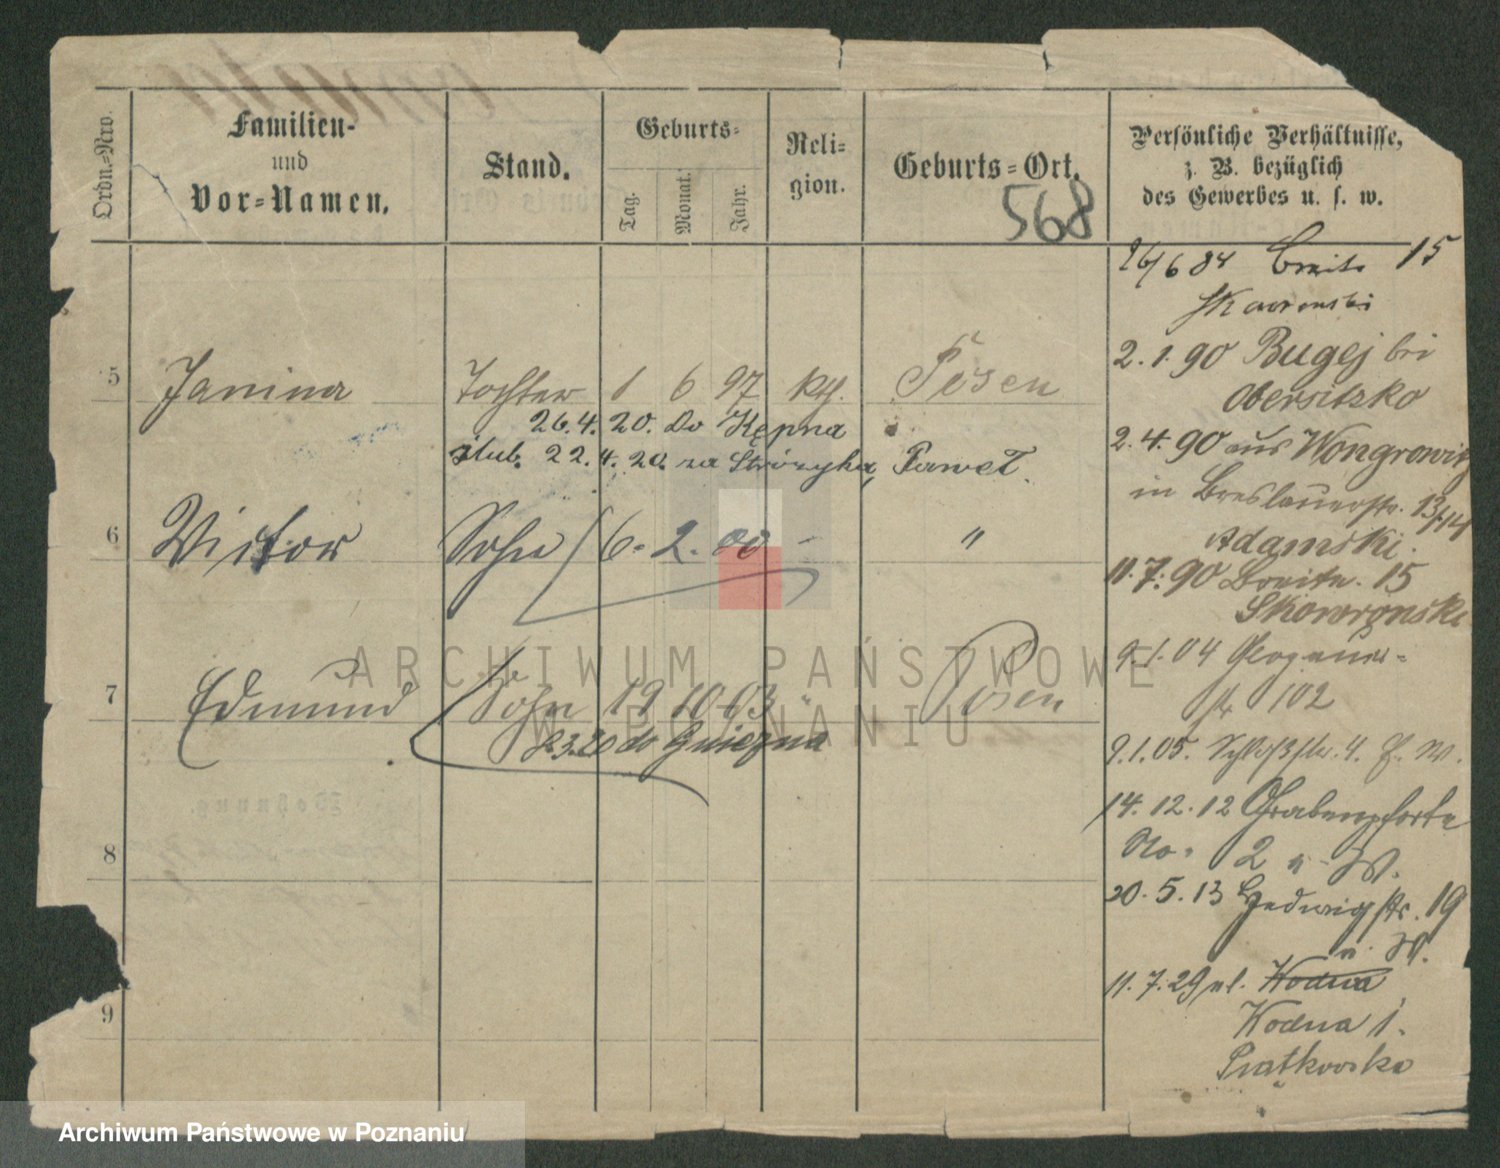 Ordn.-Nro.
Familien-
und
Vor-Namen.
Stand.
Geburts-
Tag.
Monat.
Jahr.
Reli-
gion.
Geburts-Ort.
568
Persönliche Verhältnisse,
z. B. bezüglich
des Gewerbes u. s. w.
26/6 84 Breite 15
Skowronski
2.1.90 Bugej bei
Obersitzko
2.4.90 aus Wongrowitz
in Breslauerstr. 13/14
Adamski.
11.7.90 Breite. 15
Skowronski
9.1.04
str 102
9.1.05. Schloßstr. 4.
14.12.12 Grabenpforte
No. 2 W.
20.5.13 Hedwigstr. 19
W.
11.7.29 ul. Wodna
Wodna 1.
Piątkowska
5 Janina Tochter 1 6 97 kth. Posen
26.4.20. do Kępna
ślub. 22.4.20. za Stróżyka, Paweł.
6 Victor Sohn 6. 2. 00 - "
7 Edmund Sohn 19 10 03 " Posen
do Gniezna
8
9
ARCHIWUM PAŃSTWOWE
W POZNANIU
Archiwum Państwowe w Poznaniu